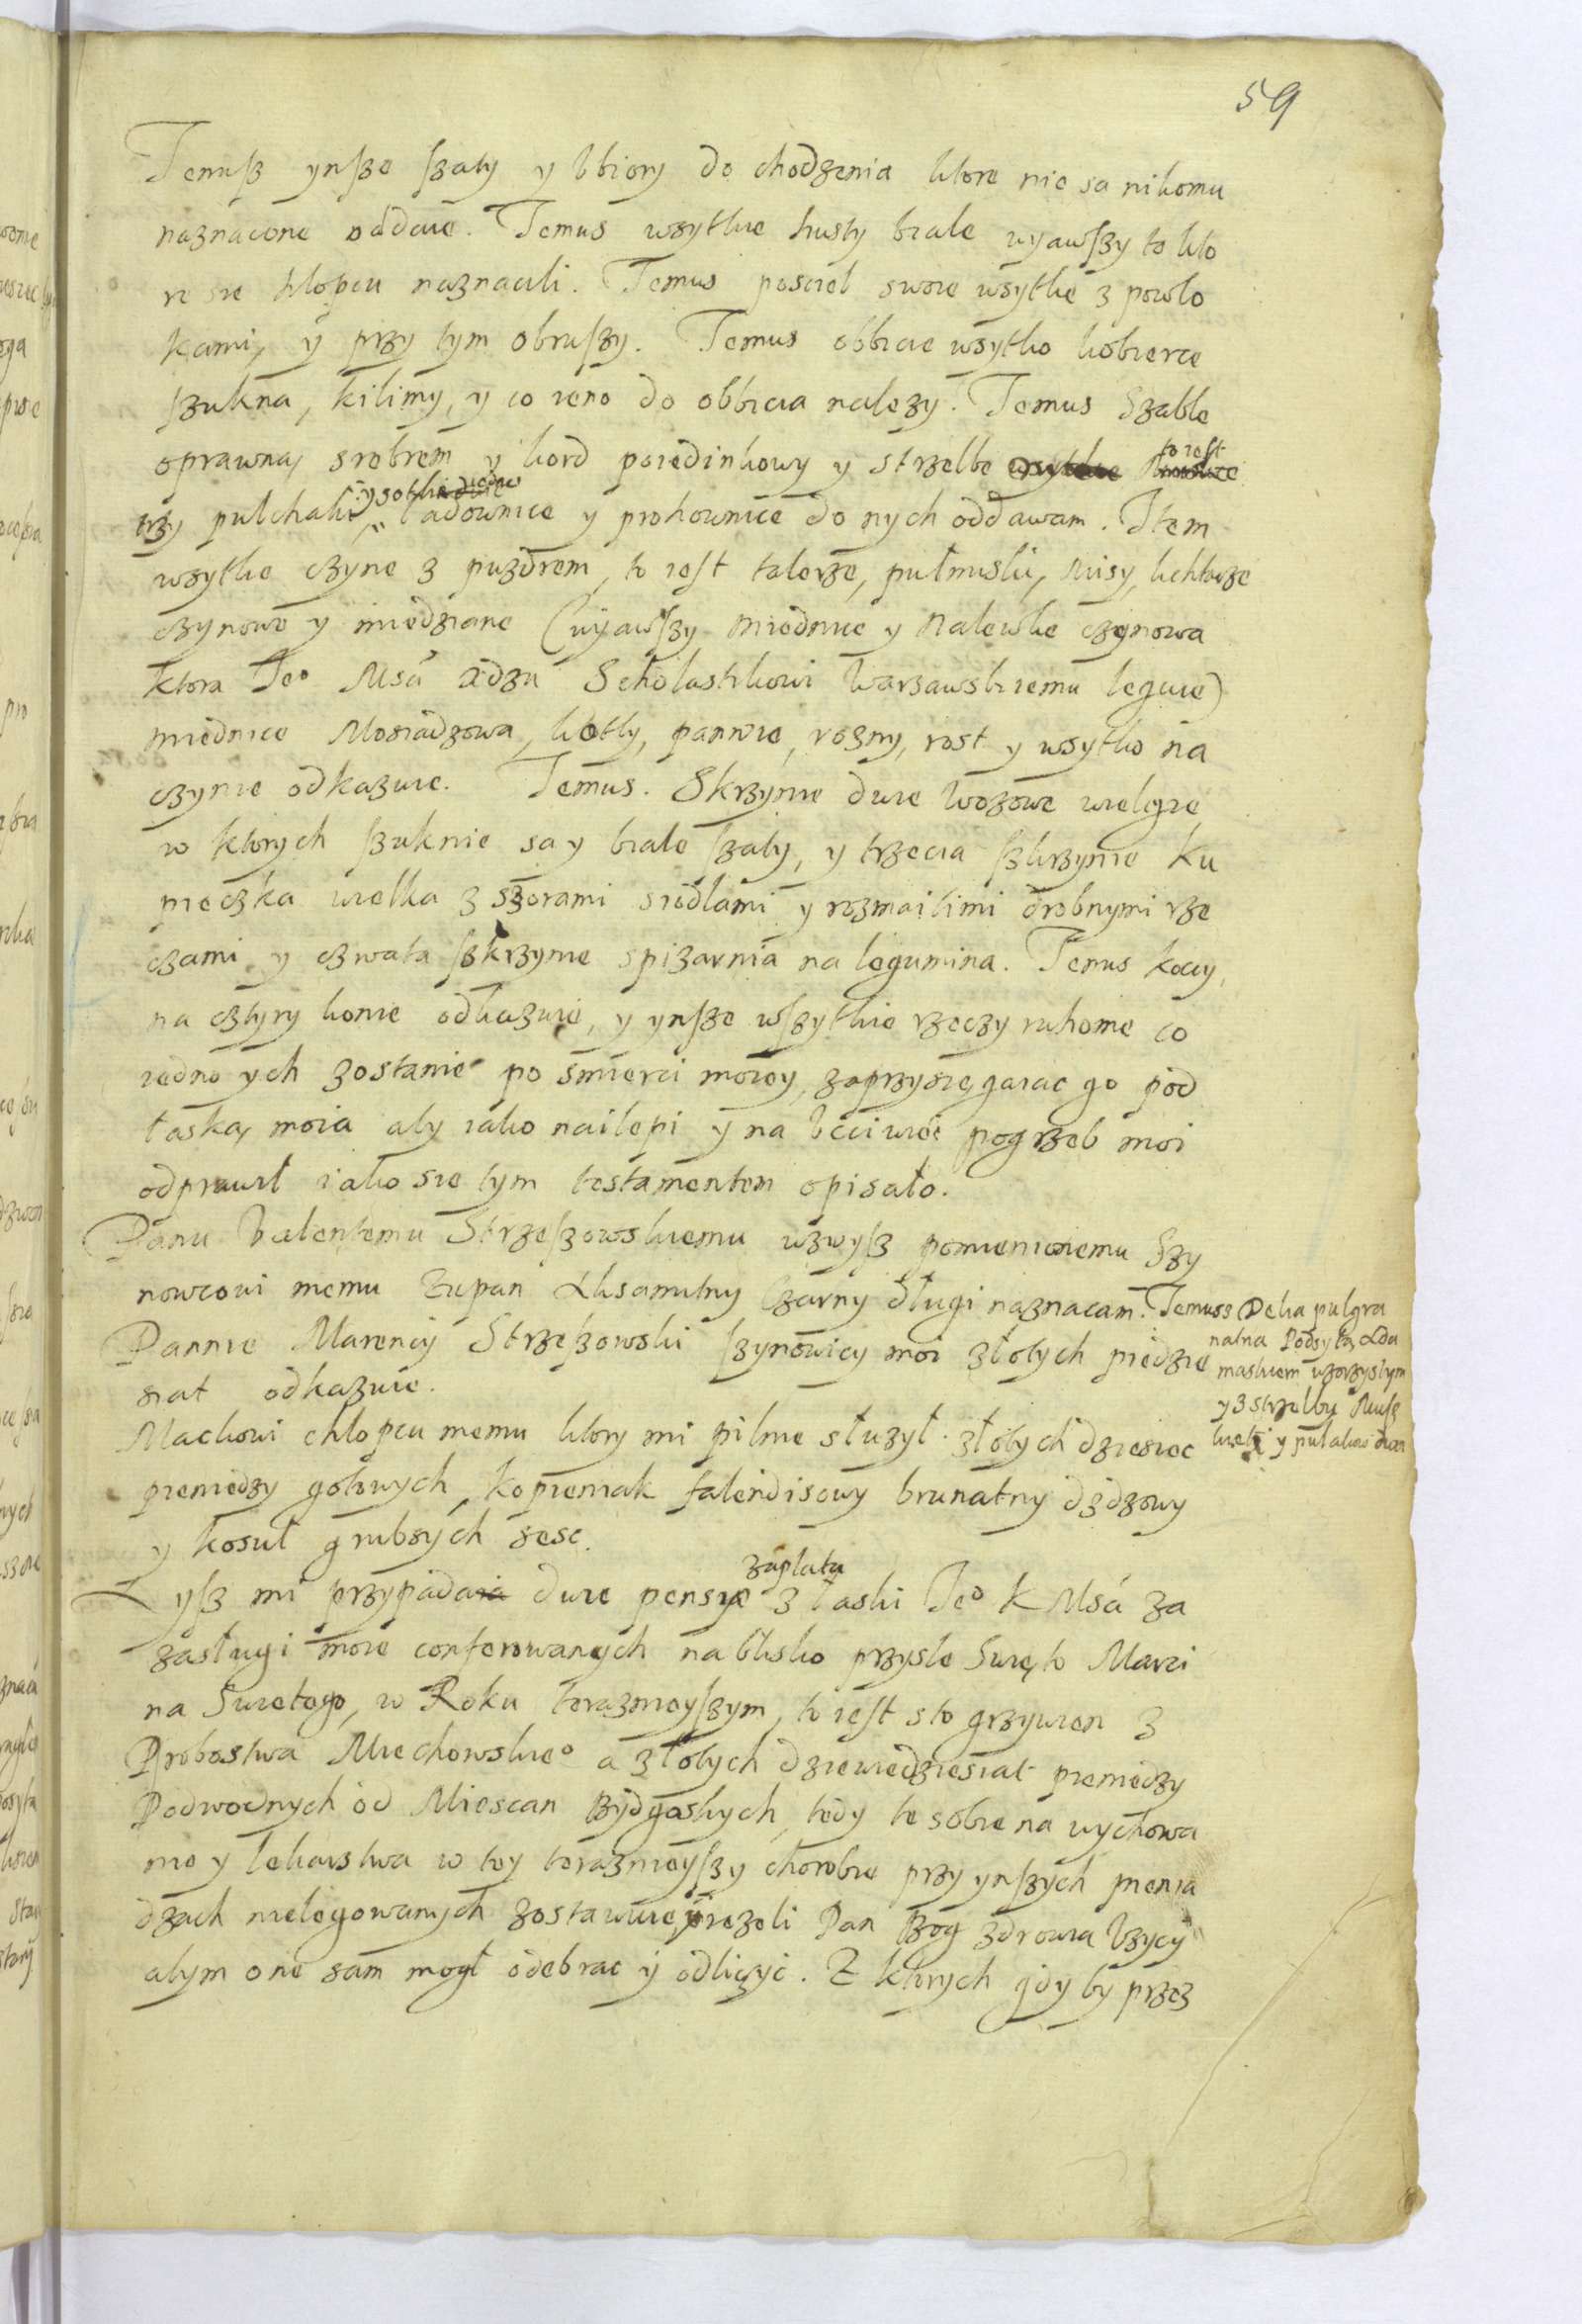 59
Temuſz ynſze ſzaty y Vbiory do chodzenia ktore nie sa nikomu
naznacone oddaie. Temus wsytkie husty biale wyawſzy to kto
re sie Hlopcu naznacili. Temus posciel swoie wsytke z powlo
kami, y przy tym obruſzy. Temus obbicie wsytko kobierce
ſzukna, kilimy, y co ieno do obbicia nalezy. Temus Szable
oprawna, srebrem y kord poiedinkowy y strzelbe to iest
trzy pulchaki, ładownice y prohownice do nych oddawam. Item
wsytke czyne z puzdrem, to iest talerze, pułmiski, misy, lichtarze
czynowe y miedziane (wyiawſzy miednice y Nalewke czynowa
ktora Jeo Msci xdzu Scholastikowi Warzawskiemu leguie)
miednice Mosiadzowa, kotly, pannwie, rozny, rost y wsytko na
czynie odkazuie. Temus. Skrzynie dwie Wozowe wielgie
w ktorych ſzuknie sa y biale ſzaty, y trzecia ſzkrzynie Ku
pieczka wielka z szorami siodlami y rozmaitimi drobnymi rze
czami y czwata ſzkrzynie spizarnia na legumina. Temus kocy,
na cztyry konie odkazuie, y ynſze wſzytkie rzeczy ruhome co
iedno ych zostanie po smierci moiey, zaprzysięgaiac go pod
łaska, moia aby iako nailepi y na Vcciwſe pogrzeb moi
odprawił iako sie tym testamentem opisało.
Panu Walentemu Strzeſzowskiemu wzwyſz pomienionemu Szy
nowcowi memu Zupan Axsamitny Czarny długi naznacam. Temusz Delia pulgra
natna Podszyta Ada
maskiem wzorzystym
y z strzelby Muſz
kiet y pulhakow dwa
Pannie Marency Strzeſzowski ſzynowicy moi złotych piedzie
siat odkazuie.
Mackowi chłopcu memu ktory mi pilnie słuzył złotych dziesiec
pieniedzy gotowych, kopieniak falendisowy brunatny dzdzowy
y kosul grubsych sesc.
Iſz mi przypada dwie pensye zaplata z łaski Jeo K Msci za
zasługi moie conferowanych na blisko przysle Swięto Marci
na Swietego, w Roku teraznieyſzym, to iest sto grzywien z
Probostwa Miechowskieo a złotych dziewiedziesiat pieniedzy
Podwodnych od Miescan Bydgoskych, tedy te sobie na wychowa
nie y lekarstwa w tey teraznieyſzy chorobie przy ynſzych pienia
dzach nielegowanych zostawuie, iezeli Pan Bog zdrowia Vzycy
abym one sam mogł odebrac y odliczyc. Z ktorych gdy by przez